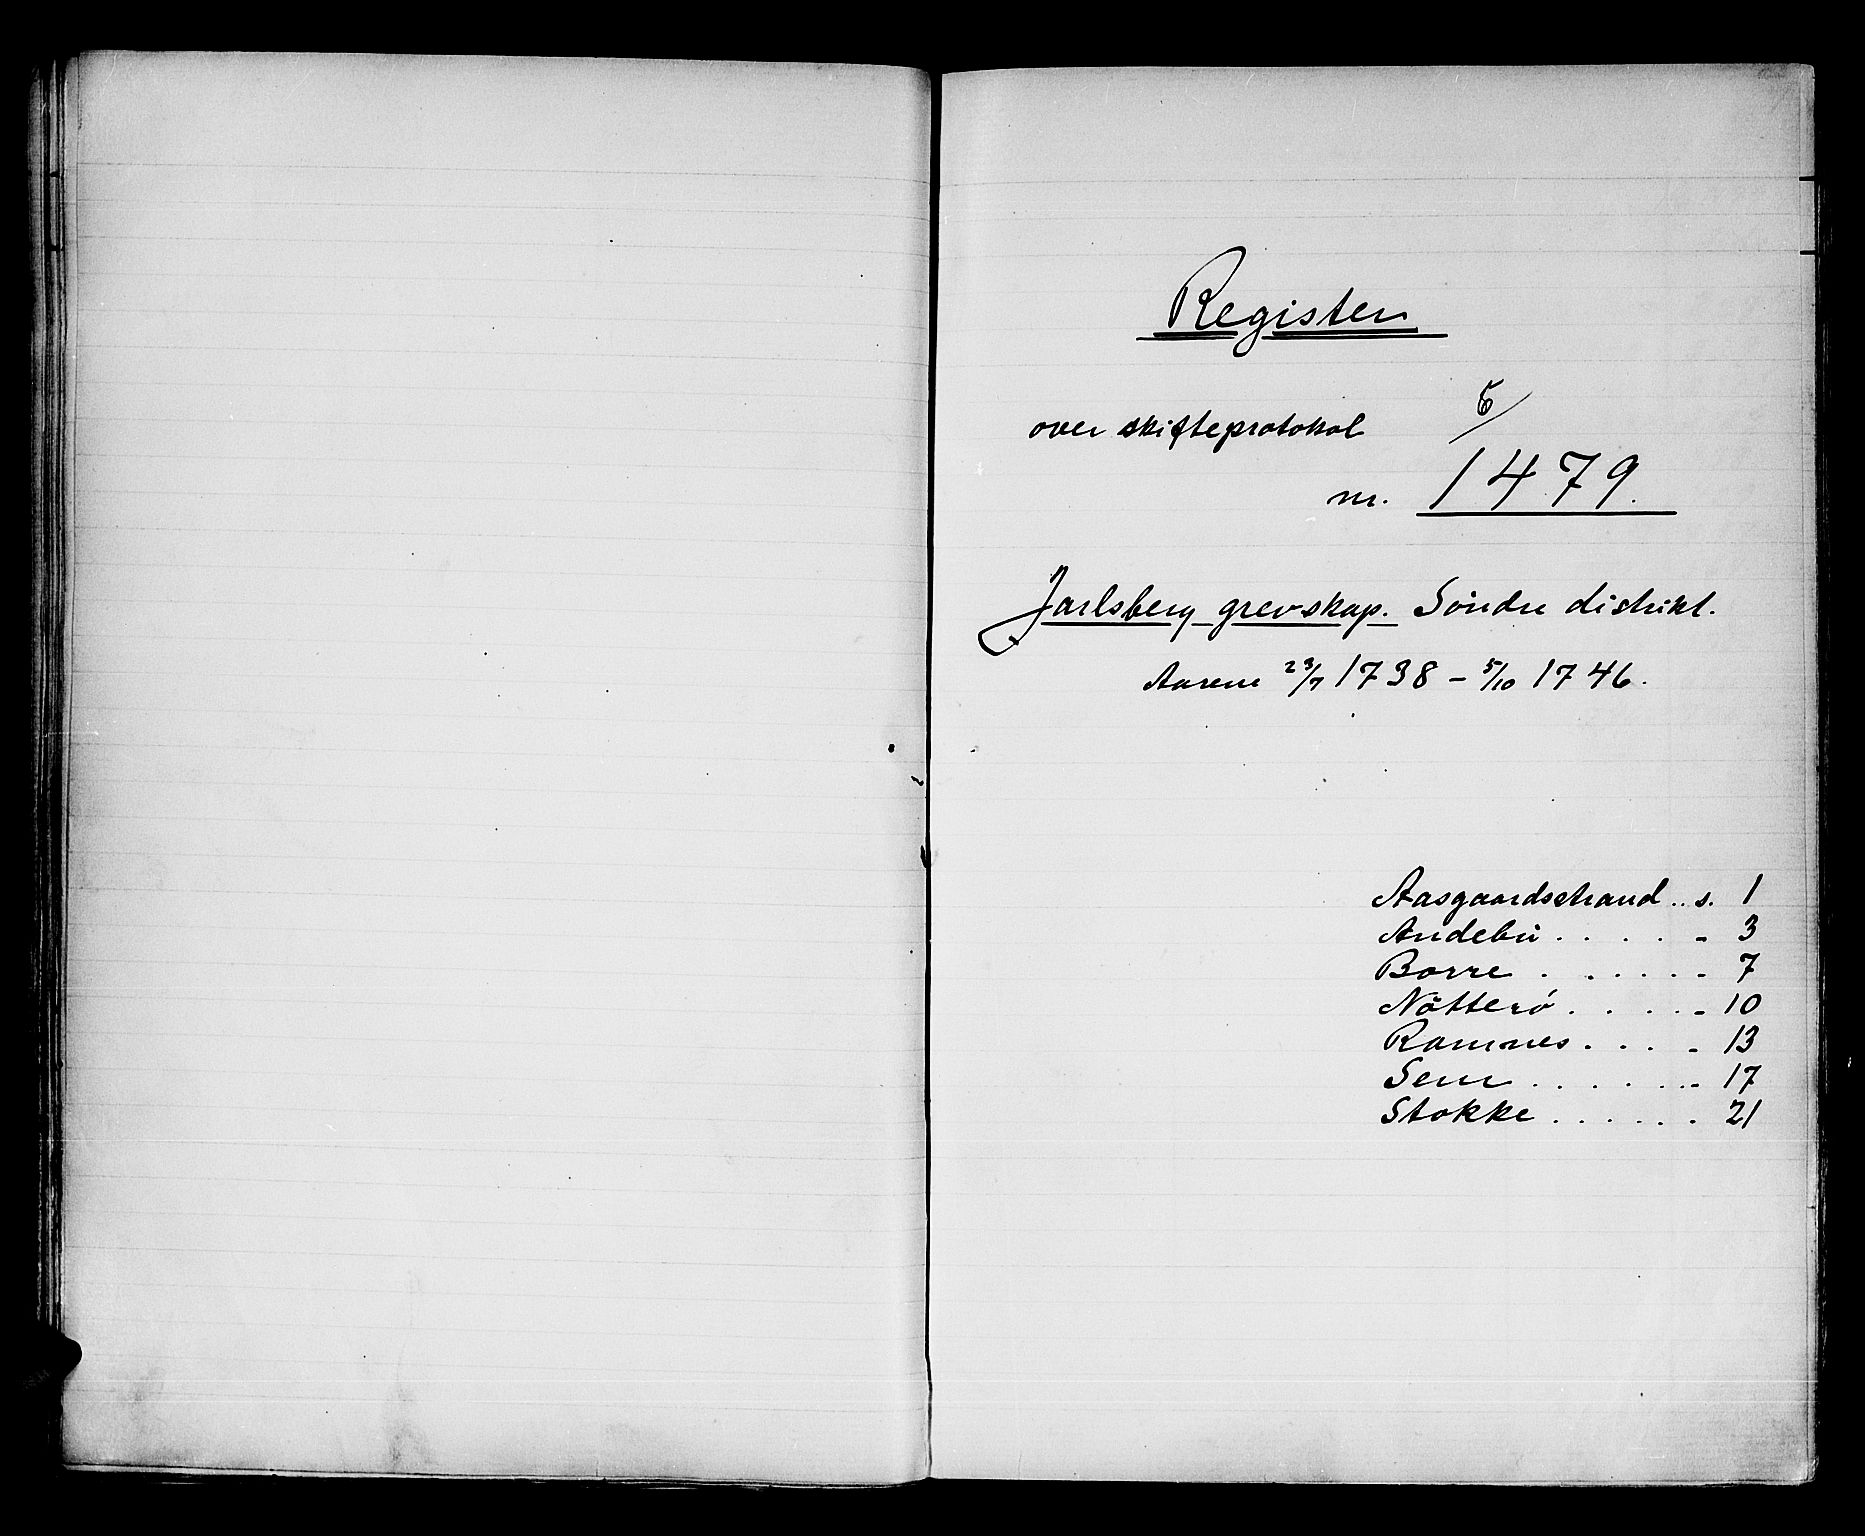 Register
over skifteprotokol 6/
nr. 1479.
Jarlsberg grevskap. Söndre distrikt.
Aarene 23/7 1738 – 5/10 1746.
Aasgaardsstrand .. s. 1
Andebu . . . . - 3
Borre . . . . . - 7
Nötterö . . . . - 10
Ramnes . . . - 13
Sem . . . . . - 17
Stokke . . . . . . 21